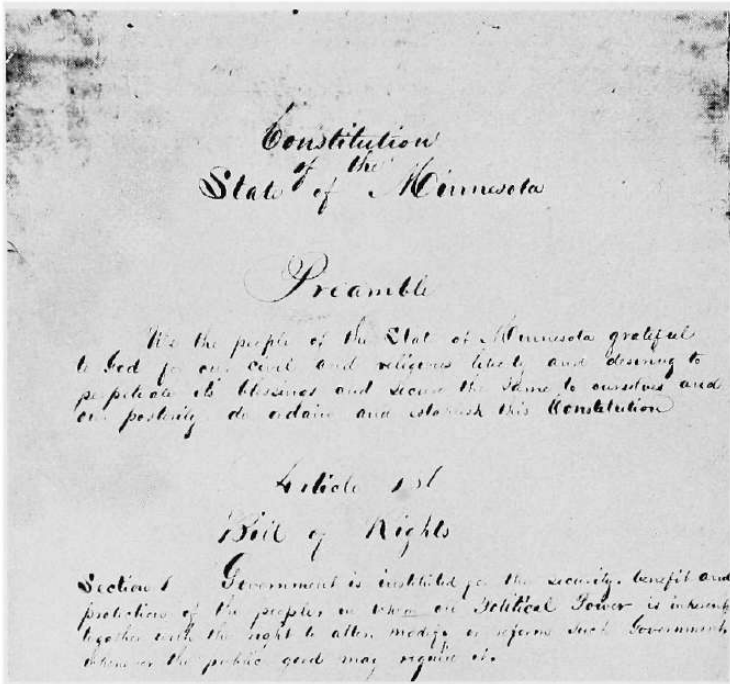 Constitution
of the
State of Minnesota
Preamble
We the people of the State of Minnesota grateful
to God for our civil and religious liberty and desiring to
perpetuate its blessings and secure the same to ourselves and
our posterity do ordain and establish this Constitution
Article 1st
Bill of Rights
Section 1 Government is instituted for the security, benefit and
protection of the people, in whom all Political Power is inherent,
together with the right to alter, modify or reform such Government,
whenever the public good may require it.